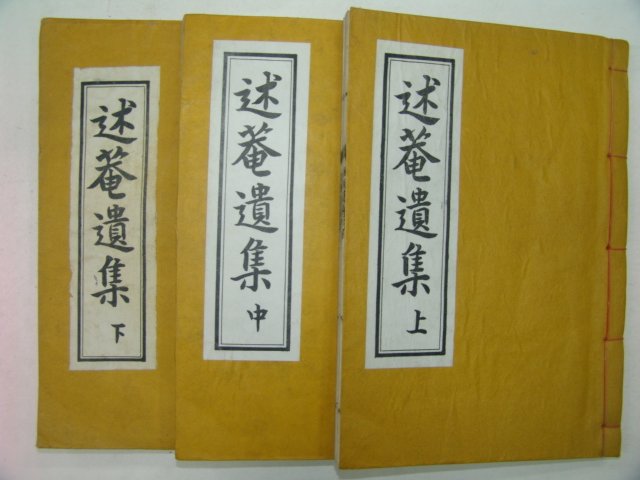 述菴遺集 上
述菴遺集 中
述菴遺集 下